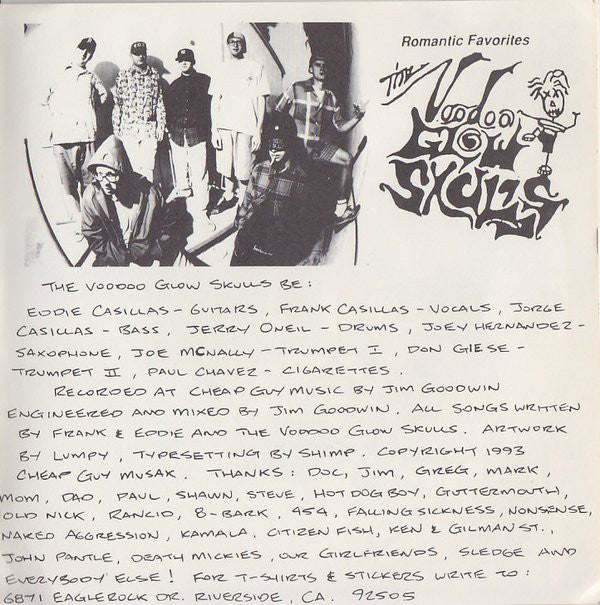 Romantic Favorites
The Voodoo Glow Skulls
THE VOODOO GLOW SKULLS BE:
EDDIE CASILLAS - GUITARS, FRANK CASILLAS - VOCALS, JORGE
CASILLAS - BASS, JERRY ONEIL - DRUMS, JOEY HERNANDEZ -
SAXOPHONE, JOE MCNALLY - TRUMPET I, DON GIESE -
TRUMPET II, PAUL CHAVEZ - CIGARETTES.
RECORDED AT CHEAP GUY MUSIC BY JIM GOODWIN
ENGINEERED AND MIXED BY JIM GOODWIN. ALL SONGS WRITTEN
BY FRANK & EDDIE AND THE VOODOO GLOW SKULLS. ARTWORK
BY LUMPY, TYPRSETTING BY SHIMP. COPYRIGHT 1993
CHEAP GUY MUSAK. THANKS: DOC, JIM, GREG, MARK,
MOM, DAD, PAUL, SHAWN, STEVE, HOT DOG BOY, GUTTERMOUTH,
OLD NICK, RANCID, B-BARK, 454, FALLING SICKNESS, NONSENSE,
NAKED AGGRESSION, KAMALA, CITIZEN FISH, KEN & GILMAN ST.,
JOHN PANTLE, DEATH MICKIES, OUR GIRLFRIENDS, SLEDGE AND
EVERYBODY ELSE! FOR T-SHIRTS & STICKERS WRITE TO:
6871 EAGLEROCK DR. RIVERSIDE, CA. 92505